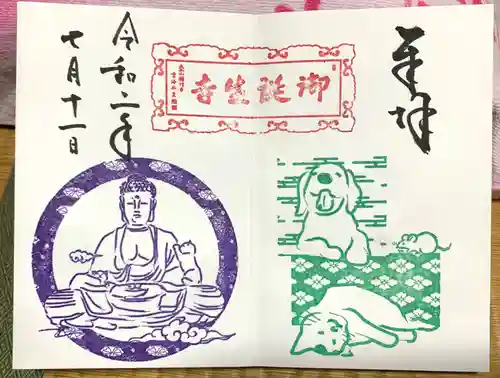 奉拝
御誕生寺
令和二年
七月十一日